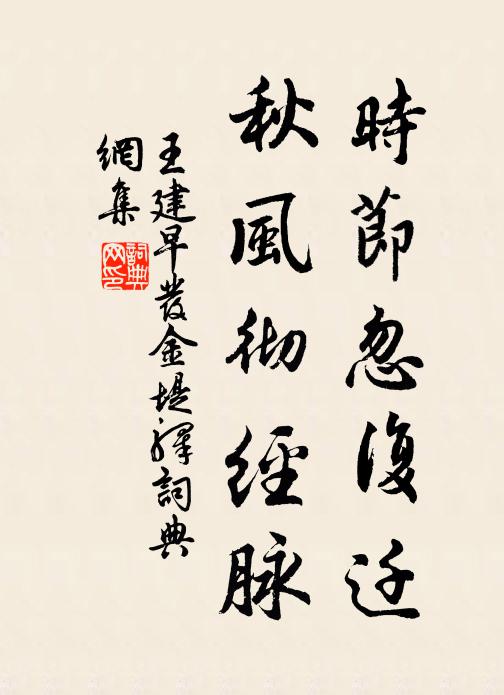 時節忽復迁
秋風彻經脉
王建早發金堤驛詞典
網集
詞典
网印